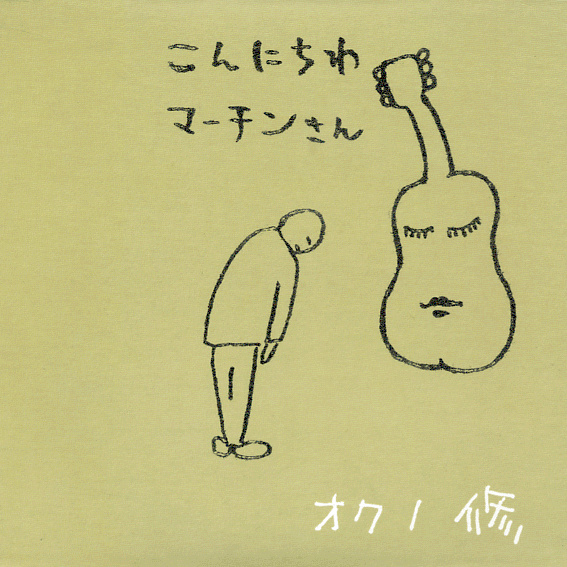 こんにちわ
マーチンさん
オクノ修